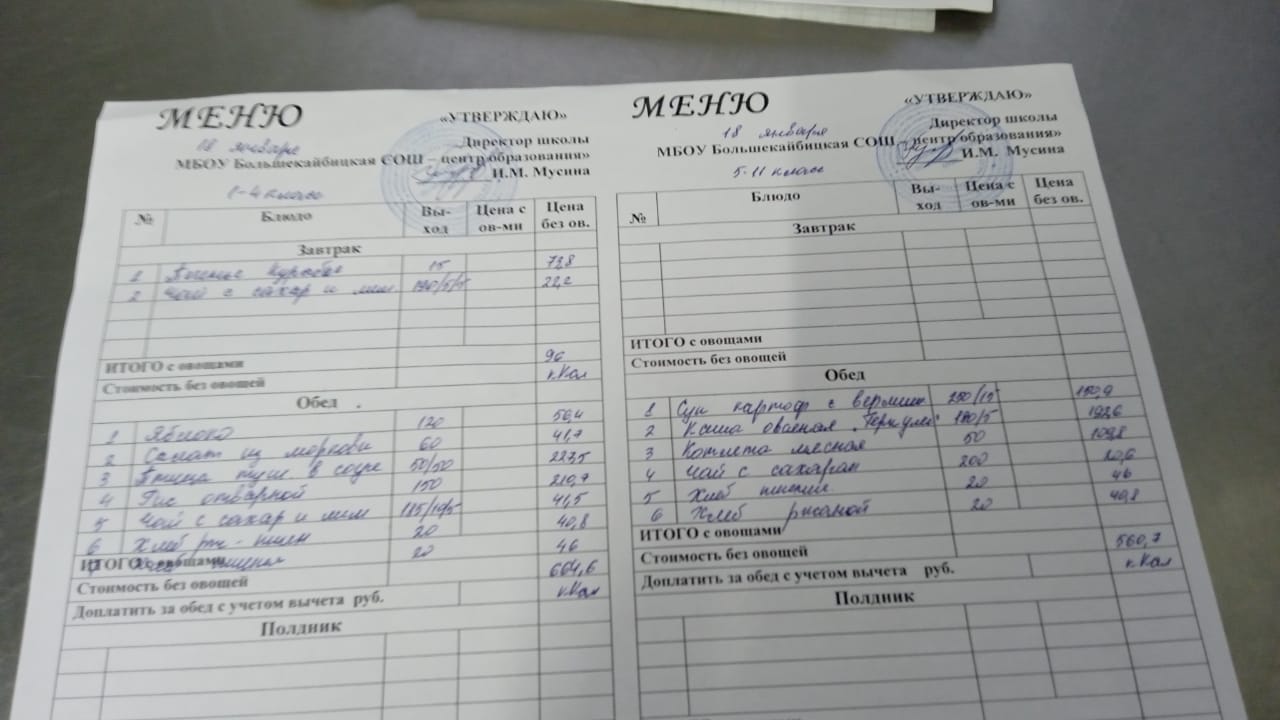 МЕНЮ
«УТВЕРЖДАЮ»
18 января
Директор школы
МБОУ Большекайбицкая СОШ – центр образования»
И.М. Мусина
1-4 класс
№ Блюдо Вы-ход Цена с ов-ми Цена без ов.
Завтрак
1 Печенье 15 73,8
2 Чай с сахар и лим. 190/5/5 22,2
ИТОГО с овощами 96
Стоимость без овощей кКал
Обед
1 Яблоко 120 56,4
2 Салат из моркови 60 41,7
3 Птица туш. в соусе 50/50 223,5
4 Рис отварной 150 210,7
5 Чай с сахар и лим 41,5
6 Хлеб рж - пшен 20 40,8
20 46
ИТОГО с овощами 664,6
Стоимость без овощей кКал
Доплатить за обед с учетом вычета руб.
Полдник
МЕНЮ
«УТВЕРЖДАЮ»
18 января
Директор школы
МБОУ Большекайбицкая СОШ – центр образования»
И.М. Мусина
5-11 класс
№ Блюдо Вы-ход Цена с ов-ми Цена без ов.
Завтрак
ИТОГО с овощами
Стоимость без овощей
Обед
1 Суп картоф с вермиш 150,9
2 Каша овсяная "Геркулес" 180/5 192,6
3 Котлета мясная 50 109,8
4 Чай с сахаром 200 20,6
5 Хлеб пшенич. 20 46
6 Хлеб ржаной 20 40,8
ИТОГО с овощами
Стоимость без овощей 560,7
Доплатить за обед с учетом вычета руб. кКал
Полдник